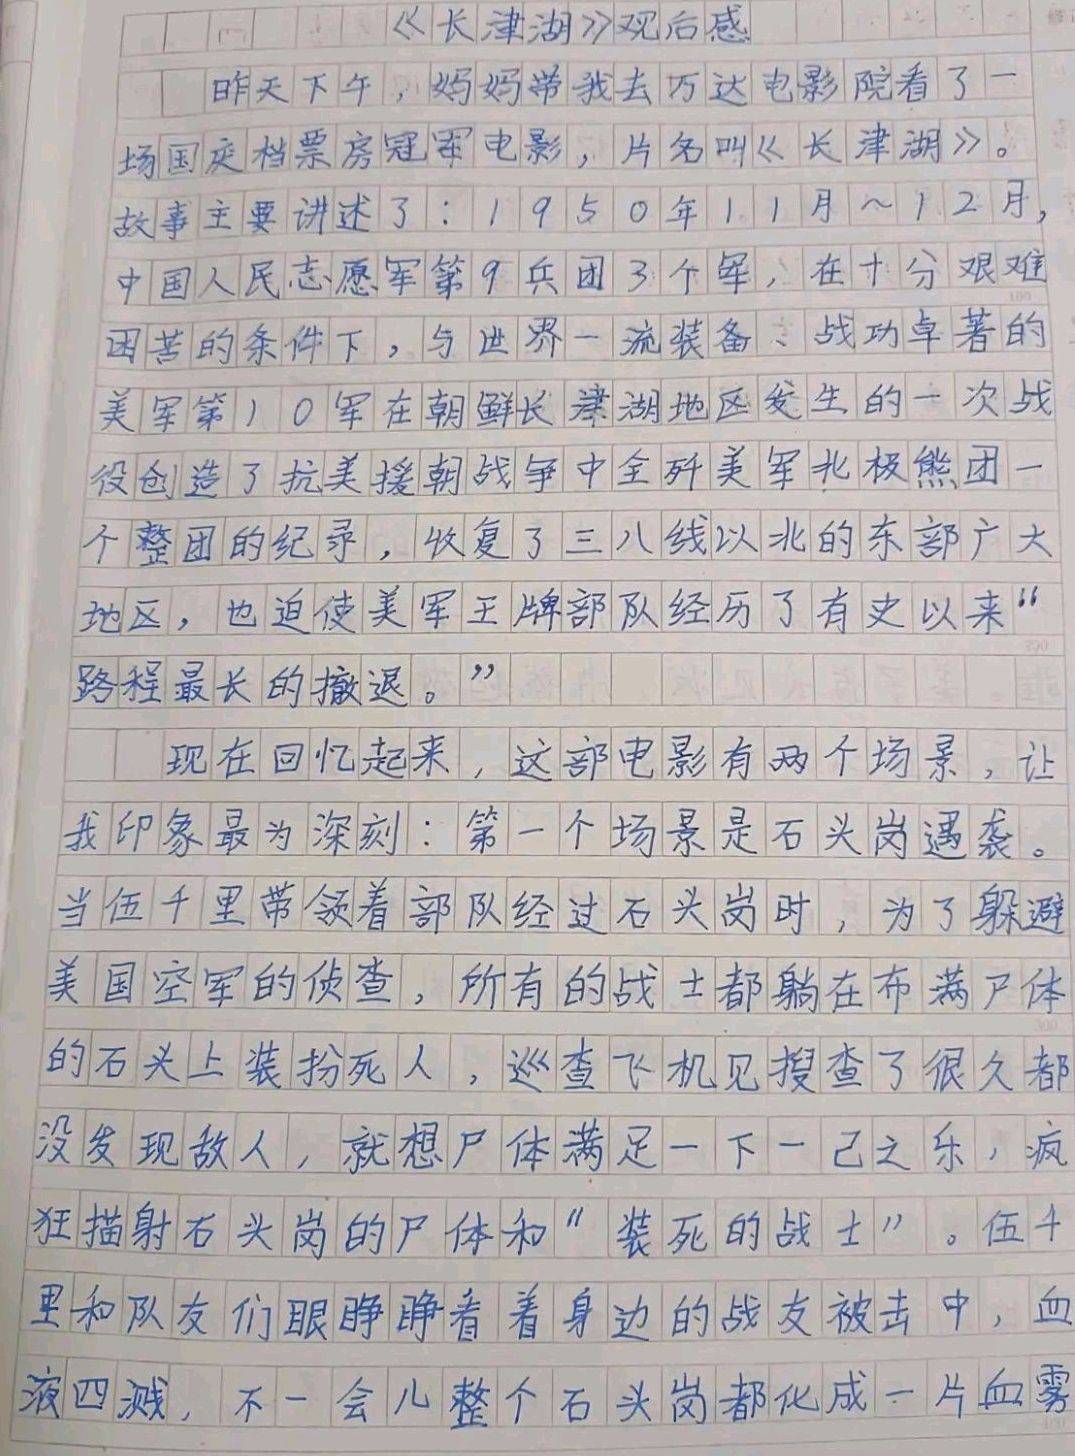 《长津湖》观后感
昨天下午，妈妈带我去万达电影院看了一
场国庆档票房冠军电影，片名叫《长津湖》。
故事主要讲述了：1950年11月～12月，
中国人民志愿军第9兵团3个军，在十分艰难
困苦的条件下，与世界一流装备、战功卓著的
美军第10军在朝鲜长津湖地区发生的一次战
役创造了抗美援朝战争中全歼美军北极熊团一
个整团的纪录，收复了三八线以北的东部广大
地区，也迫使美军王牌部队经历了有史以来“
路程最长的撤退。”
现在回忆起来，这部电影有两个场景，让
我印象最为深刻：第一个场景是石头岗遇袭。
当伍千里带领着部队经过石头岗时，为了躲避
美国空军的侦查，所有的战士都躺在布满尸体
的石头上装扮死人，巡查飞机见搜查了很久都
没发现敌人，就想尸体满足一下一己之乐，疯
狂描射石头岗的尸体和“装死的战士”。伍千
里和队友们眼睁睁看着身边的战友被击中，血
液四溅，不一会儿整个石头岗都化成一片血雾